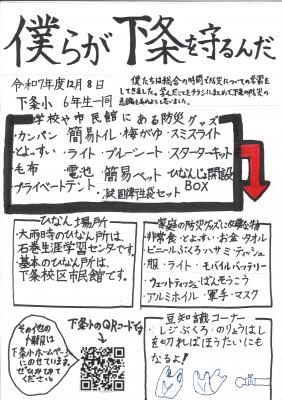 僕らが下条を守るんだ
令和7年度12月8日
下条小 6年生一同
僕たちは総合の時間で防災についての学習を
してきました。学んだことをチラシにまとめて下条の防災の
意識を高めようと思いました。
学校や市民館にある防災グッズ
・カンパン 簡易トイレ・梅がゆ・スミスライト
・とよっすい・ライト・ブルーシート・スターターキット
・毛布 電池 簡易ベット・ひなんじょ開設
プライベートテント・ BOX
ひなん場所
・大雨時のひなん所は、
石巻生涯学習センターです。
・基本のひなん所は、
下条校区市民館です。
家庭の防災グッズに必要な物
非常食・とよっすい・お金・タオル
ビニールぶくろ・ハサミ・ティッシュ
・服・ライト・モバイルバッテリー
ウェットティッシュ・ばんそうこう
アルミホイル・軍手・マスク
その他の
情報は
下条小ホームページ
にのせています。
ぜひみてみて
ください。
下条小のQRコードです
豆知識コーナー
・レジぶくろ・のりょうはし
を切ればほうたいにも
なるよ!